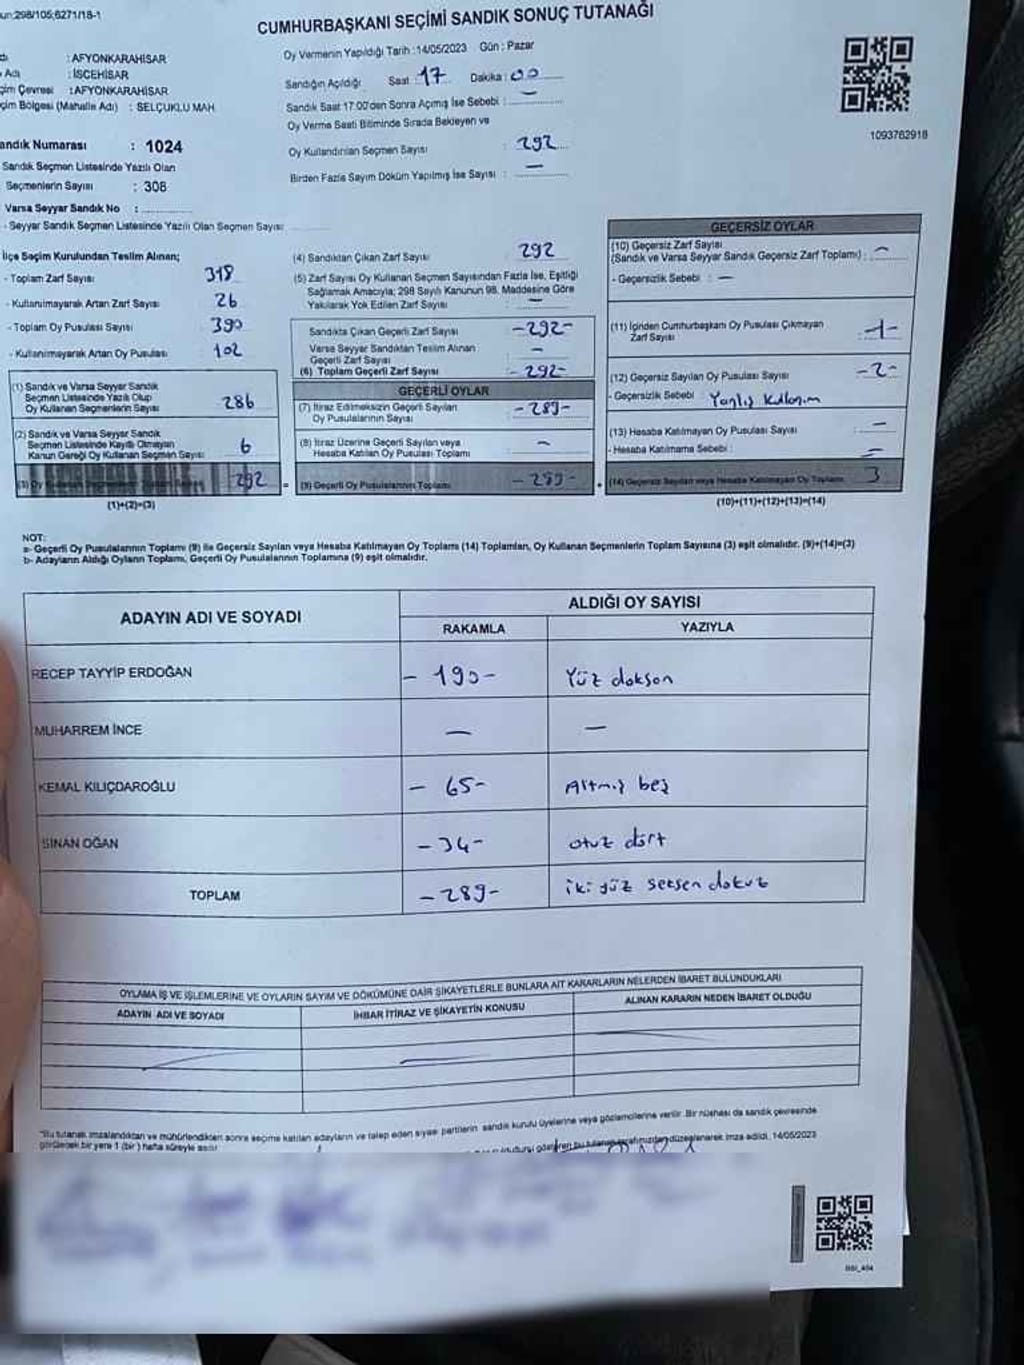 CUMHURBAŞKANI SEÇİMİ SANDIK SONUÇ TUTANAĞI
: AFYONKARAHİSAR
Adı : İSCEHİSAR
Seçim Çevresi : AFYONKARAHİSAR
(Mahalle Adı) : SELÇUKLU MAH.
Sandık Numarası : 1024
Sandık Seçmen Listesinde Yazılı Olan
Seçmenlerin Sayısı : 308
Varsa Seyyar Sandık No :
- Seyyar Sandık Seçmen Listesinde Yazılı Olan Seçmen Sayısı
Oy Vermenin Yapıldığı Tarih : 14/05/2023 Gün : Pazar
Sandığın Açıldığı Saat : 17 Dakika : 00
Sandık Saat 17.00'den Sonra Açılmış İse Sebebi : —
Oy Verme Saati Bitiminde Sırada Bekleyen ve
Oy Kullandırılan Seçmen Sayısı : 292
Birden Fazla Sayım Döküm Yapılmış İse Sayısı : —
1093762918
İlçe Seçim Kurulundan Teslim Alınan;
- Toplam Zarf Sayısı 318
- Kullanılmayarak Artan Zarf Sayısı 26
- Toplam Oy Pusulası Sayısı 390
- Kullanılmayarak Artan Oy Pusulası 102
(1) Sandık ve Varsa Seyyar Sandık
Seçmen Listesinde Yazılı Olup
Oy Kullanan Seçmenlerin Sayısı 286
(2) Sandık ve Varsa Seyyar Sandık
Seçmen Listesinde Kayıtlı Olmayan
Kanun Gereği Oy Kullanan Seçmen Sayısı 6
292
(1)+(2)=(3)
(4) Sandıktan Çıkan Zarf Sayısı 292
(5) Zarf Sayısı Oy Kullanan Seçmen Sayısından Fazla İse, Eşitliği
Sağlamak Amacıyla; 298 Sayılı Kanunun 98. Maddesine Göre
Yakılarak Yok Edilen Zarf Sayısı —
Sandıkta Çıkan Geçerli Zarf Sayısı -292-
Varsa Seyyar Sandıktan Teslim Alınan
Geçerli Zarf Sayısı —
(6) Toplam Geçerli Zarf Sayısı -292-
GEÇERLİ OYLAR
(7) İtiraz Edilmeksizin Geçerli Sayılan
Oy Pusulalarının Sayısı -289-
(8) İtiraz Üzerine Geçerli Sayılan veya
Hesaba Katılan Oy Pusulası Toplamı —
(9) Geçerli Oy Pusulalarının Toplamı -289-
GEÇERSİZ OYLAR
(10) Geçersiz Zarf Sayısı
(Sandık ve Varsa Seyyar Sandık Geçersiz Zarf Toplamı) : —
- Geçersizlik Sebebi : —
(11) İçinden Cumhurbaşkanı Oy Pusulası Çıkmayan
Zarf Sayısı -1-
(12) Geçersiz Sayılan Oy Pusulası Sayısı -2-
- Geçersizlik Sebebi : Yanlış kullanım
(13) Hesaba Katılmayan Oy Pusulası Sayısı —
- Hesaba Katılmama Sebebi : —
(14) Geçersiz Sayılan veya Hesaba Katılmayan Oy Toplamı 3
(10)+(11)+(12)+(13)=(14)
NOT:
a- Geçerli Oy Pusulalarının Toplamı (9) ile Geçersiz Sayılan veya Hesaba Katılmayan Oy Toplamı (14) Toplamları, Oy Kullanan Seçmenlerin Toplam Sayısına (3) eşit olmalıdır. (9)+(14)=(3)
b- Adayların Aldığı Oyların Toplamı, Geçerli Oy Pusulalarının Toplamına (9) eşit olmalıdır.
ADAYIN ADI VE SOYADI ALDIĞI OY SAYISI
RAKAMLA YAZIYLA
RECEP TAYYİP ERDOĞAN - 190- Yüz doksan
MUHARREM İNCE — —
KEMAL KILIÇDAROĞLU - 65- Altmış beş
SİNAN OĞAN -34- otuz dört
TOPLAM -289- iki yüz seksen dokuz
OYLAMA İŞ VE İŞLEMLERİNE VE OYLARIN SAYIM VE DÖKÜMÜNE DAİR ŞİKAYETLERLE BUNLARA AİT KARARLARIN NELERDEN İBARET BULUNDUKLARI
ADAYIN ADI VE SOYADI İHBAR İTİRAZ VE ŞİKAYETİN KONUSU ALINAN KARARIN NEDEN İBARET OLDUĞU
*Bu tutanak imzalandıktan ve mühürlendikten sonra seçime katılan adayların ve talep eden siyasi partilerin sandık kurulu üyelerine veya gözlemcilerine verilir. Bir nüshası da sandık çevresinde
görülecek bir yere 1 (bir) hafta süreyle asılır
gösteren bu tutanak tarafımızdan düzenlenerek imza edildi. 14/05/2023